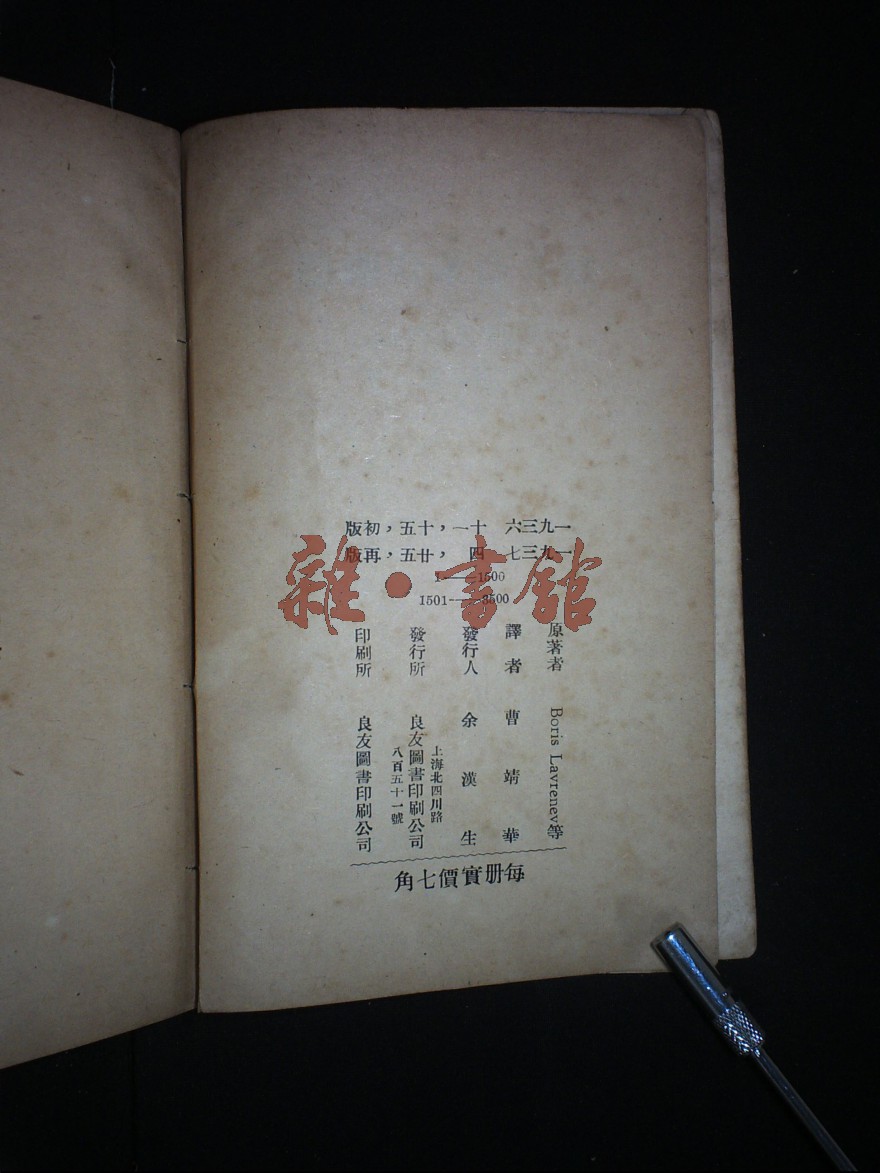 一九三六 十一，十五，初版
一九三七 四，廿五，再版
1——1500
1501——3500
原著者 Boris Lavrenev等
譯者 曹靖華
發行人 余漢生
發行所 良友圖書印刷公司
上海北四川路
八百五十一號
印刷所 良友圖書印刷公司
每册實價七角
雜·書館